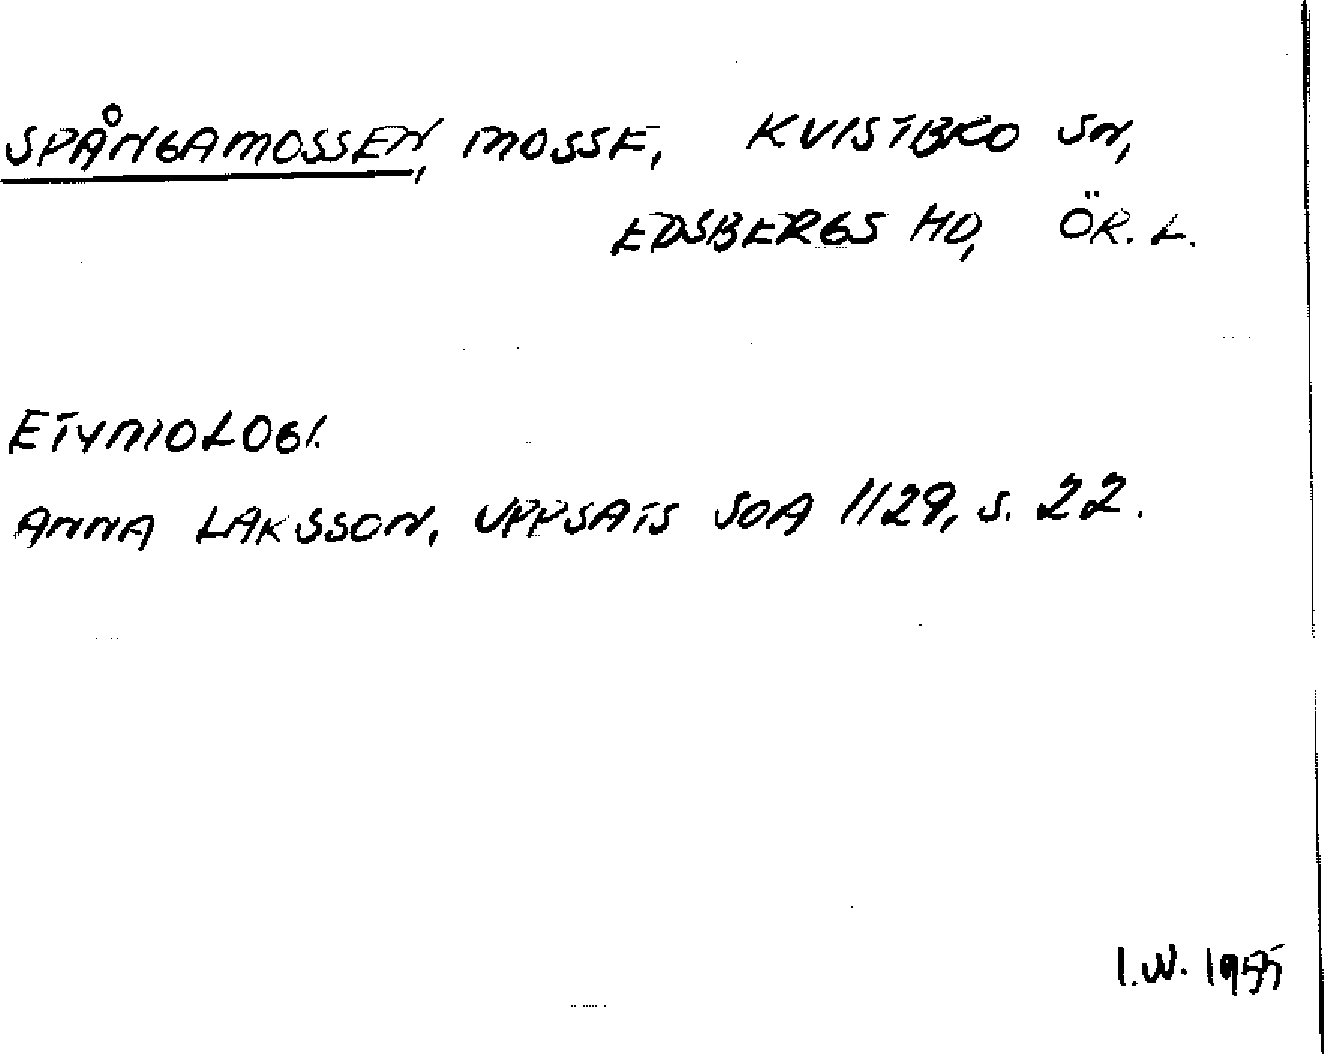 SPÅNGAMOSSEN, MOSSE, KVISTBRO SN,
EDSBERGS HD, ÖR. L.
ETYMOLOGI.
ANNA LARSSON, UPPSATS SOA 1129, S. 22.
I.W. 1955